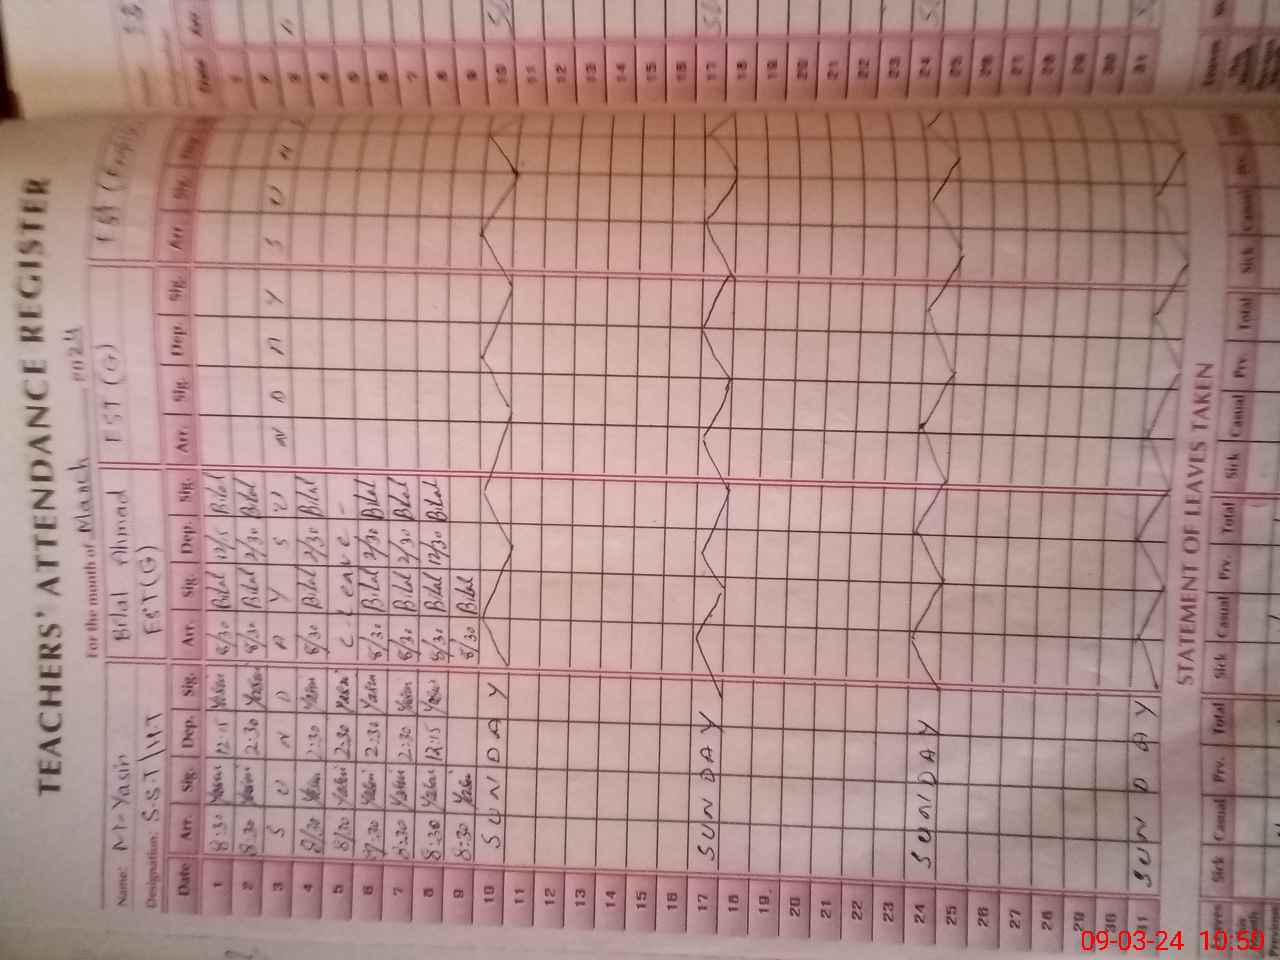 TEACHERS' ATTENDANCE REGISTER
For the month of March 2024
Name: M-Yasin Bilal Ahmad EST (G)
Designation: S.S.T \ H.T EST (G)
Date Arr. Sig. Dep. Sig. Arr. Sig. Dep. Sig. Arr. Sig. Dep. Sig. Arr.
1 8:30 Yasin 12:15 Yasin 8/30 Bilal 12/15 Bilal
2 8:30 Yasin 2:30 Yasin 8/30 Bilal 2/30 Bilal
3 S U N D A Y S U N D A Y S U N
4 8/30 Yasin 2:30 Yasin 8/30 Bilal 2/30 Bilal
5 8/30 Yasin 2:30 Yasin C. Leave -
6 Yasin 2:30 Yasin 8/30 Bilal 2/30 Bilal
7 8:30 Yasin 2:30 Yasin 8/30 Bilal 2/30 Bilal
8 8:30 Yasin 12:15 Yasin 8/30 Bilal 12/30 Bilal
9 8:30 Yasin 8/30 Bilal
10 S U N D A Y
11
12
13
14
15
16
17 SUN DAY
18
19
20
21
22
23
24 SUNDAY
25
26
27
28
29
30
31 SUN D AY
STATEMENT OF LEAVES TAKEN
Sick Casual Prv. Total Sick Casual Prv. Total Sick Casual Prv. Total Sick Casual
Date
1
2
3
4
5
6
7
8
9
10
11
12
13
14
15
16
17
18
19
20
21
22
23
24
25
26
27
28
29
30
31
09-03-24 10:50